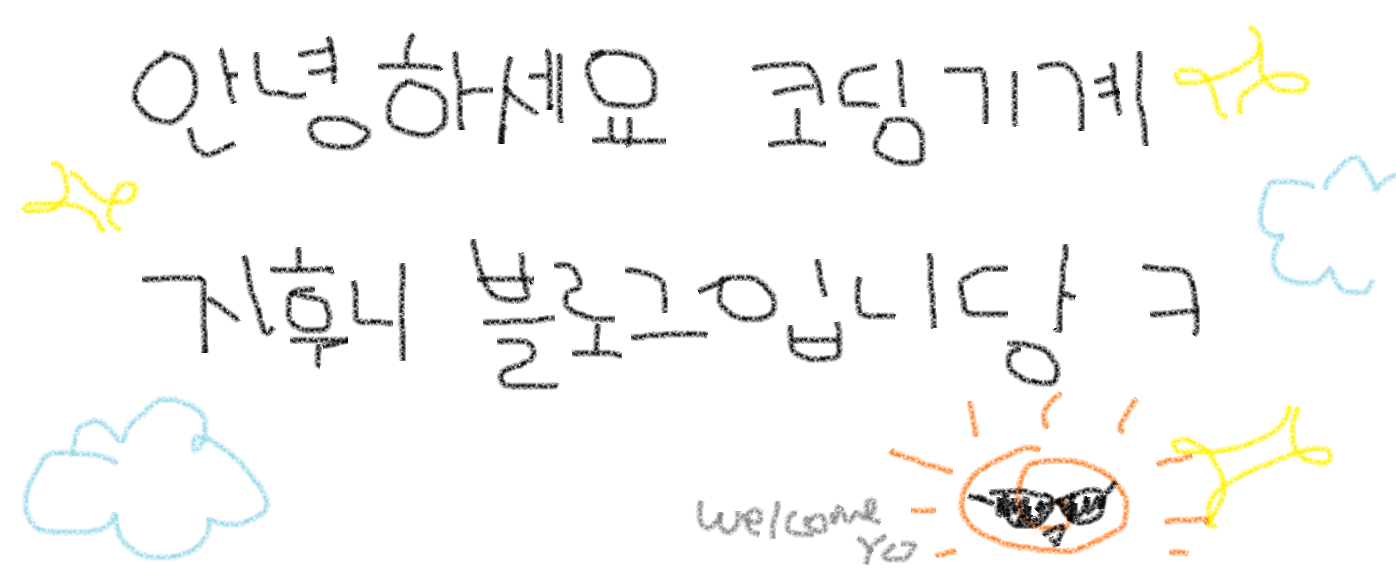 안녕하세요 코딩기계
지후니 블로그입니당 ㅋ
welcome
Yo